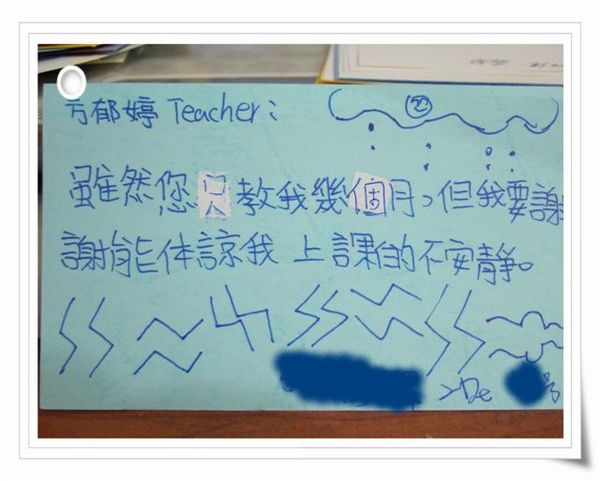 方郁婷 Teacher:
雖然您只教我幾個月，但我要謝
謝能体諒我 上課的不安靜。